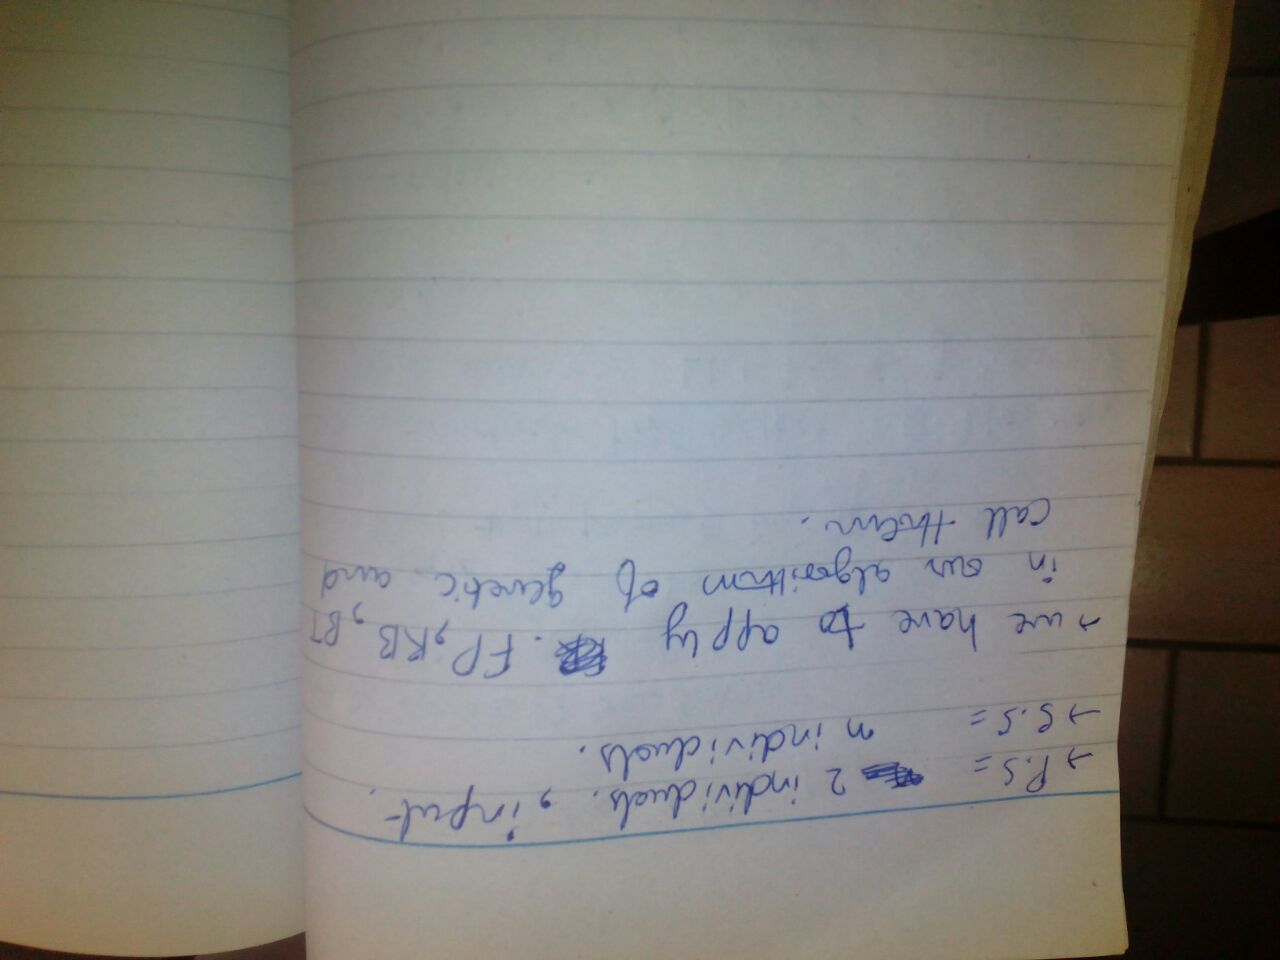 → P.S = 2 individuals, input.
→ S.S = n individuals.
→ we have to apply FP, RB, BT
in our algorithm of genetic and
call them.